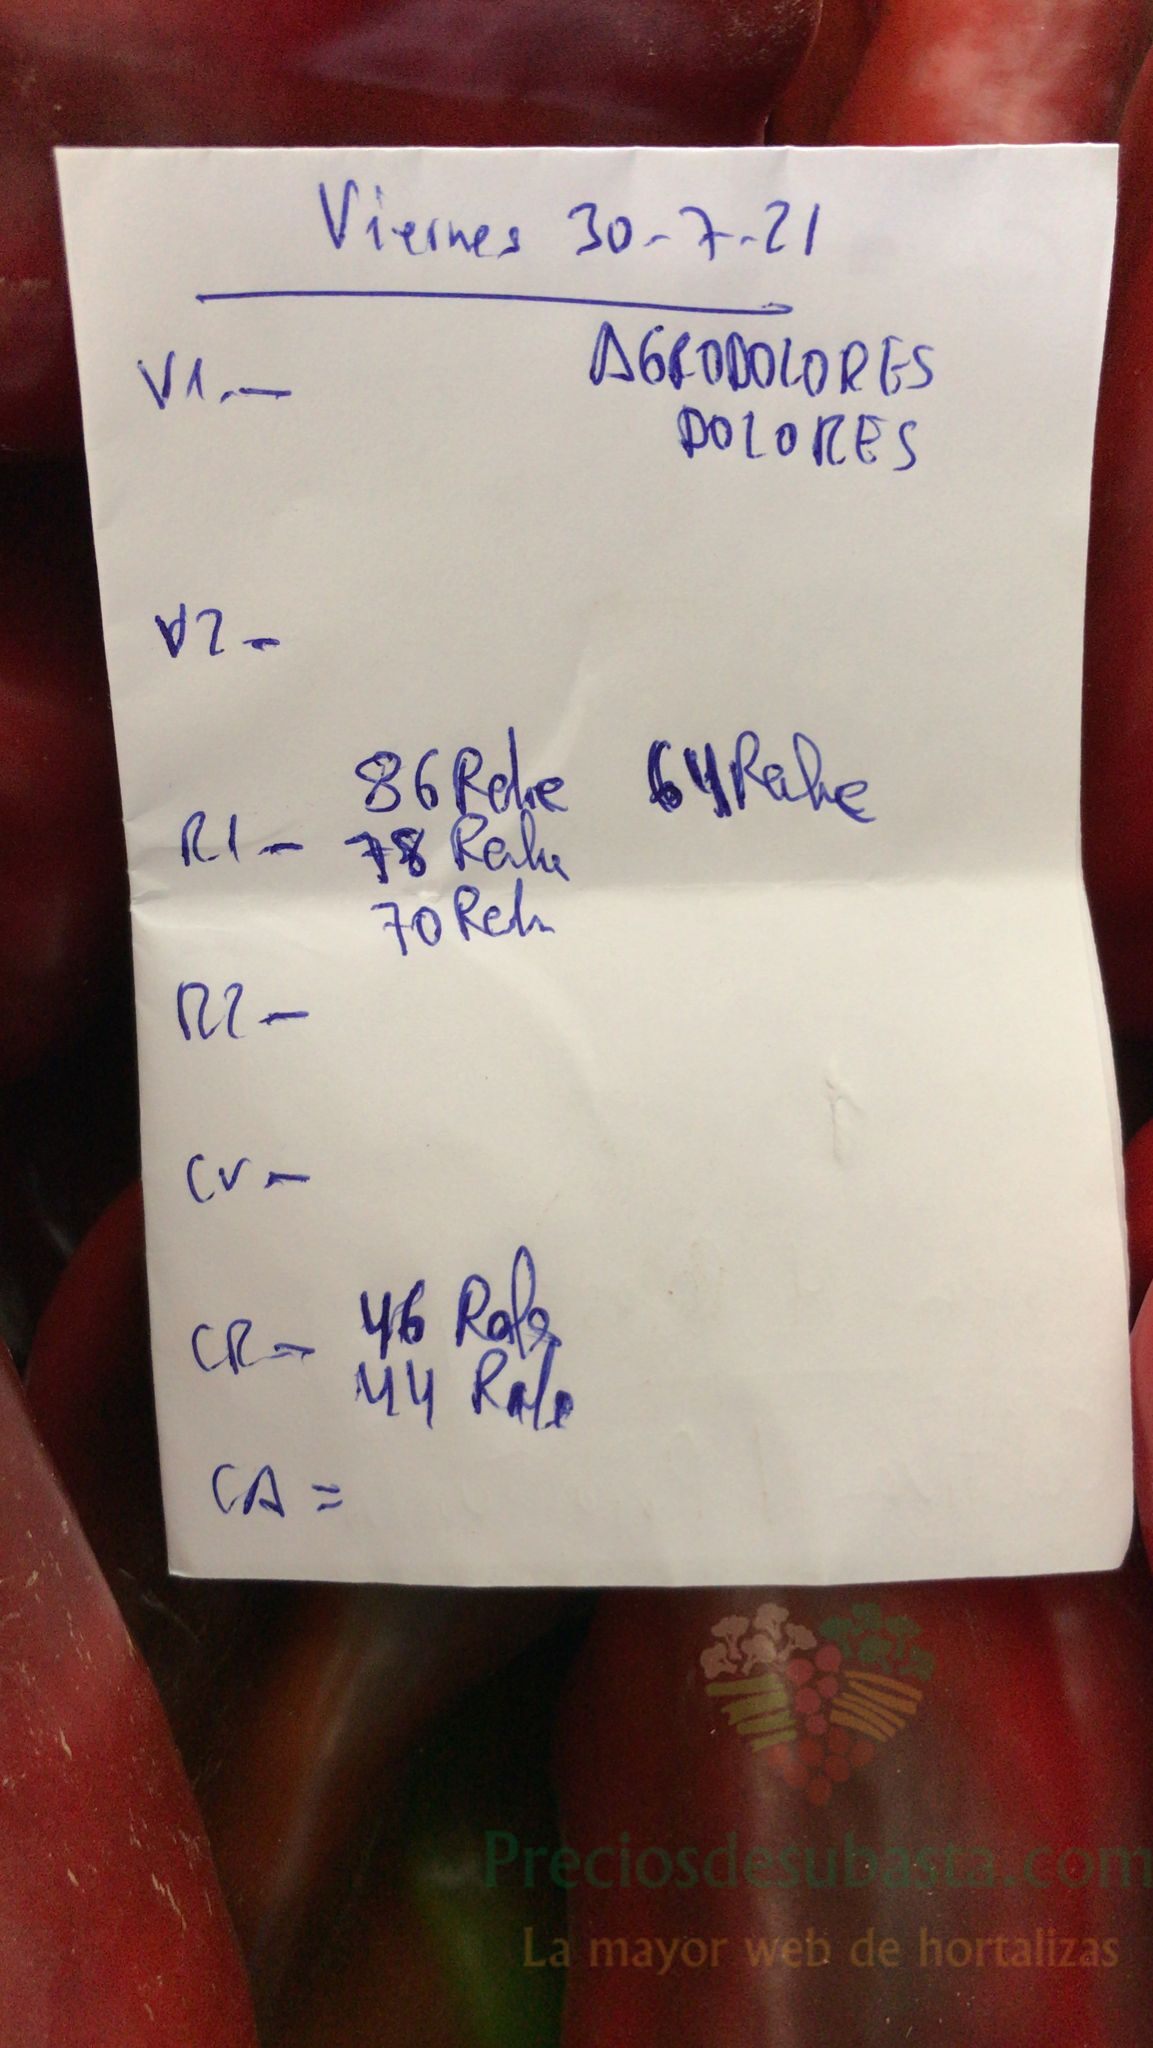 Viernes 30-7-21
AGRODOLORES
DOLORES
V1.-
V2-
86 Rafe 64 Rafe
R1- 78 Rafe
70 Rafe
R2-
CV-
CR- 46 Rafe
44 Rafe
CA=
Preciosdesubasta.com
La mayor web de hortalizas